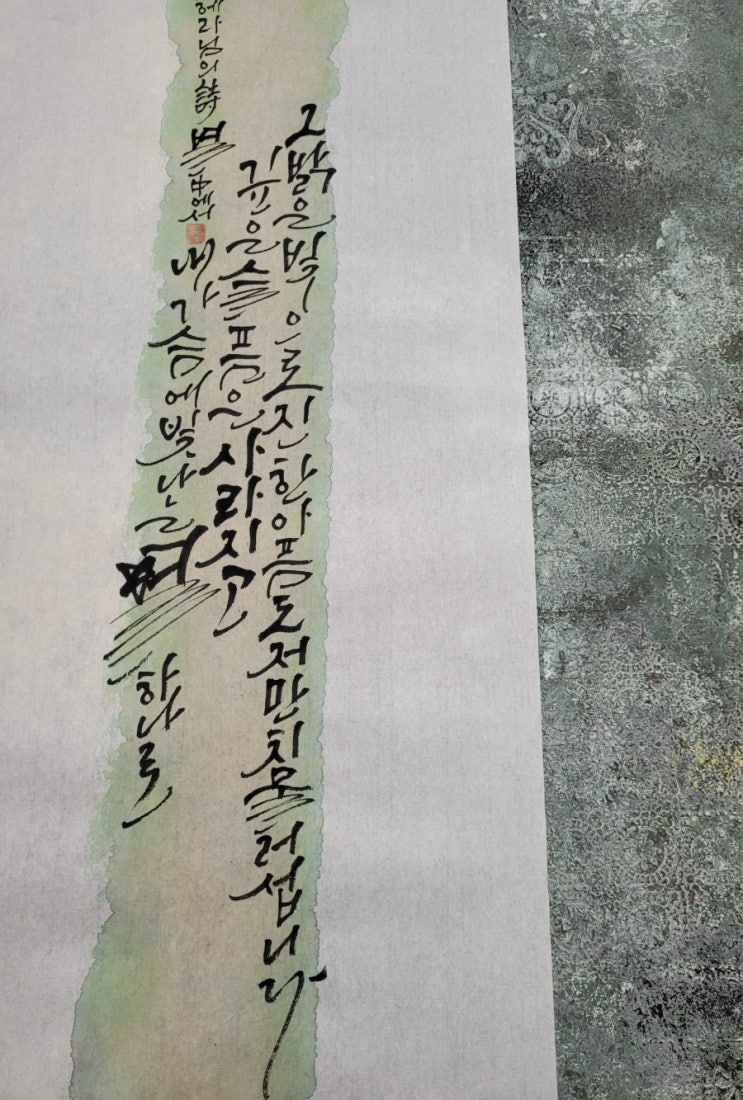 헤라님의 詩 별 中에서
내 가슴에 빛나는 별 하나로
깊은 슬픔은 사라지고
그 밝은 빛으로 진한 아픔도 저만치 물러섭니다